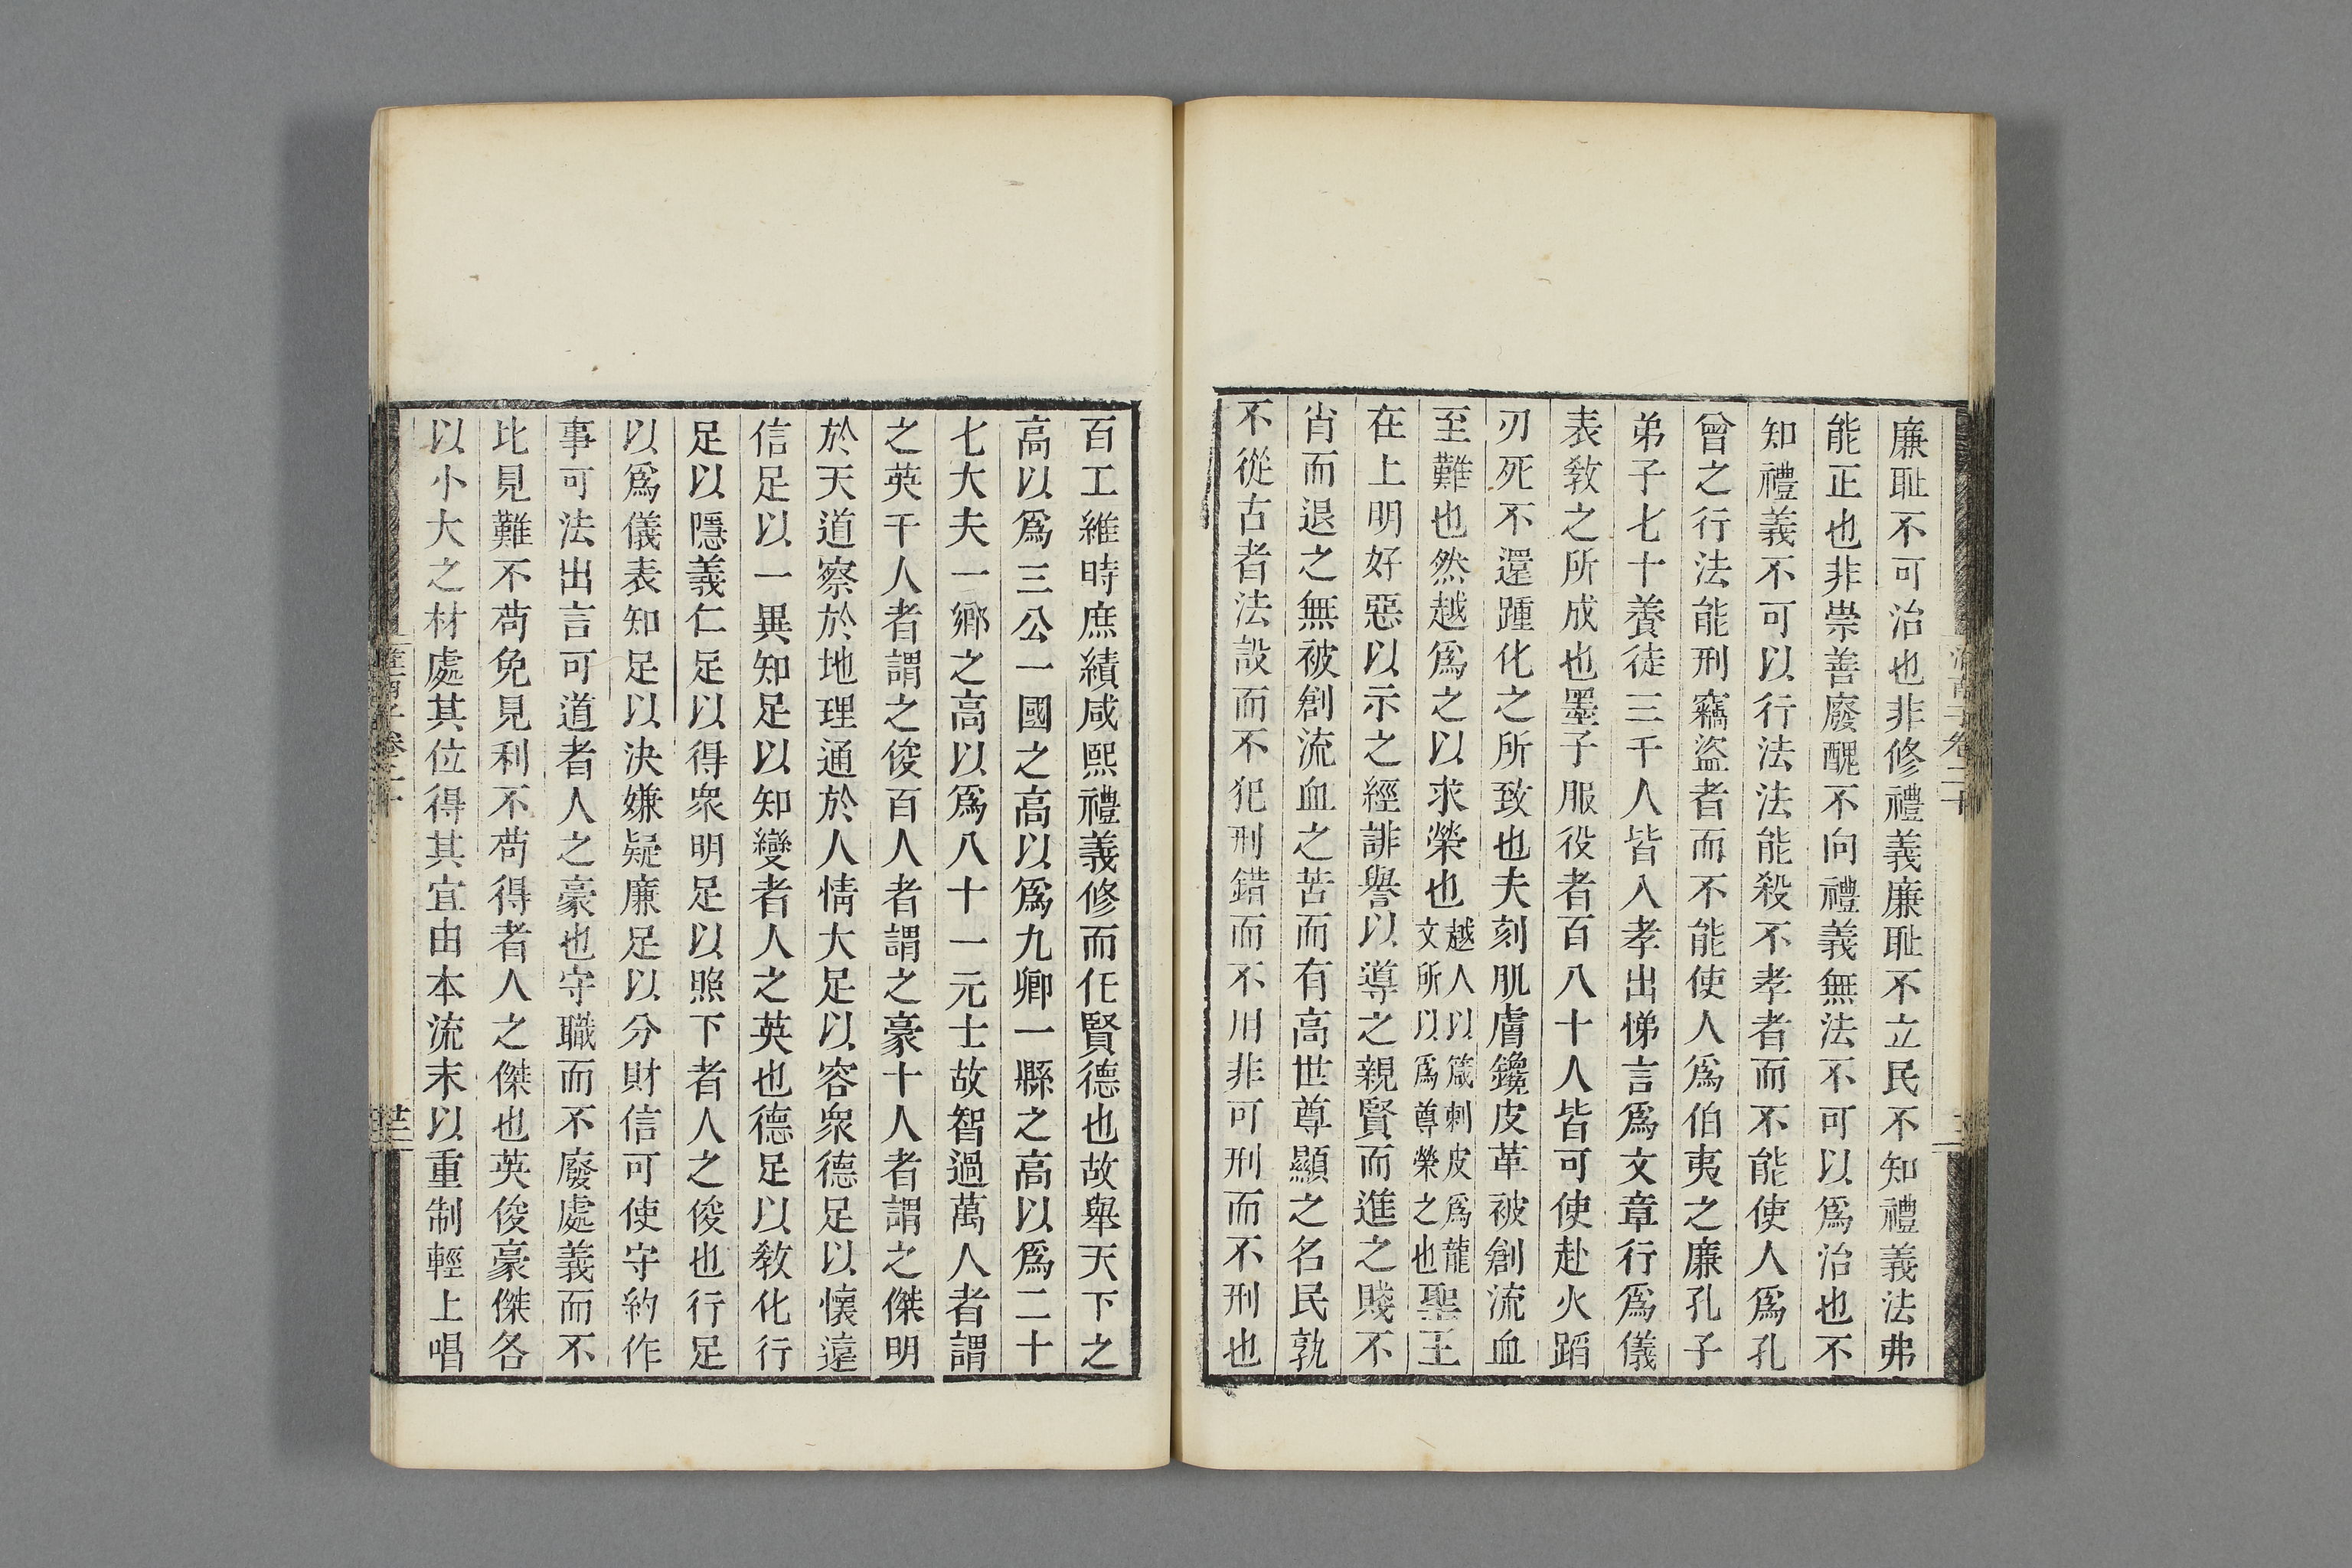 廉耻不可治也非修禮義廉耻不立民不知禮義法弗
能正也非崇善廢醜不向禮義無法不可以爲治也不
知禮義不可以行法法能殺不孝者而不能使人爲孔
曾之行法能刑竊盜者而不能使人爲伯夷之廉孔子
弟子七十養徒三千人皆入孝出悌言爲文章行爲儀
表敎之所成也墨子服役者百八十人皆可使赴火蹈
刃死不還踵化之所致也夫刻肌膚鑱皮革被創流血
至難也然越爲之以求榮也越人以箴刺皮爲龍文所以爲尊榮之也聖王
在上明好惡以示之經誹譽以導之親賢而進之賤不
肖而退之無被創流血之苦而有高世尊顯之名民孰
不從古者法設而不犯刑錯而不用非可刑而不刑也
百工維時庶績咸熙禮義修而任賢德也故舉天下之
高以爲三公一國之高以爲九卿一縣之高以爲二十
七大夫一鄉之高以爲八十一元士故智過萬人者謂
之英千人者謂之俊百人者謂之豪十人者謂之傑明
於天道察於地理通於人情大足以容衆德足以懷遠
信足以一異知足以知變者人之英也德足以敎化行
足以隱義仁足以得衆明足以照下者人之俊也行足
以爲儀表知足以決嫌疑廉足以分財信可使守約作
事可法出言可道者人之豪也守職而不廢處義而不
比見難不茍免見利不茍得者人之傑也英俊豪傑各
以小大之材處其位得其宜由本流末以重制輕上唱
淮南子卷二十